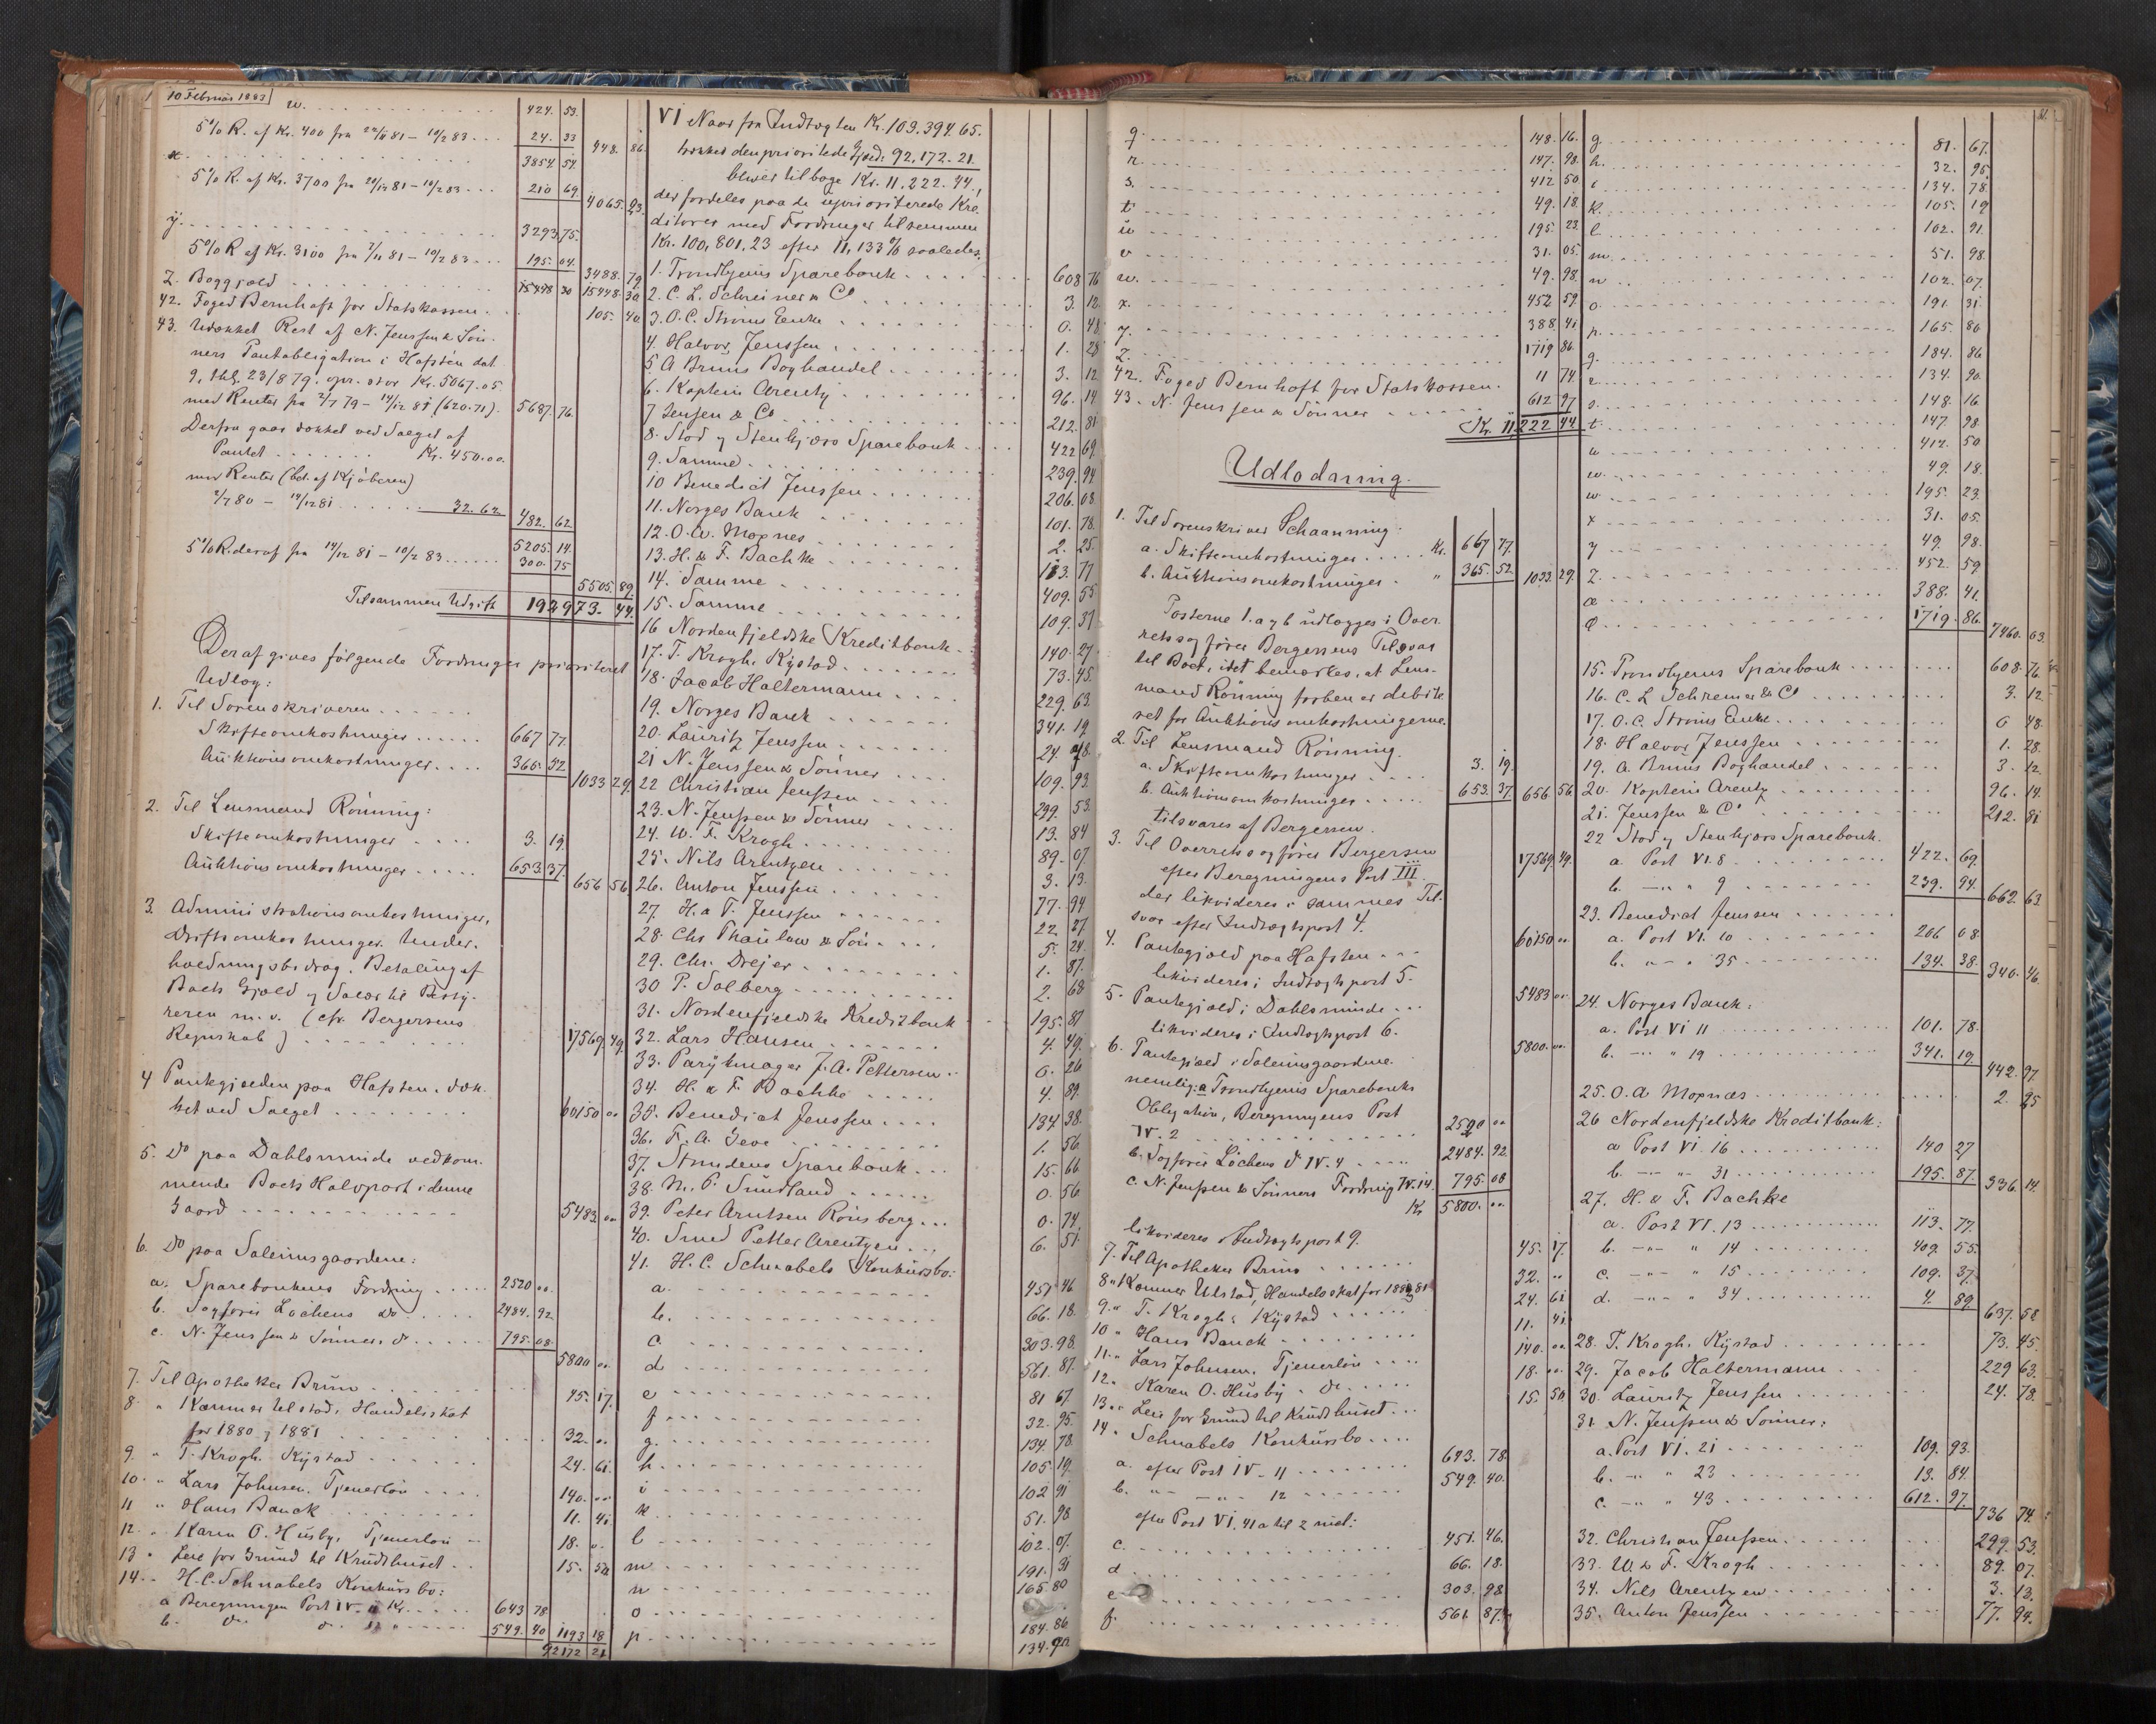 10 Februar 1883
w. 424. 53.
5% R. af Kr. 400 fra 81 – 10/2 83 24. 33 448. 86.
x. 3854. 54.
5% R. af Kr. 3700 fra 81 – 10/2 83 210 69. 4065. 23.
y. 3293. 75.
5% R af Kr. 3100 fra 81 – 10/2 83 195. 04. 3488. 79
Z. Boggjæld 15448 30 15448. 30
42. Foged Bernhoft for Statskassen 105. 40.
43. Udækket Rest af N. Jenssen & Søn-
ners Pantobligation i Hafsten dat
9, thgl. 23/8 79. opr. stor Kr. 5067.05.
med Renter fra 2/7 79 – 14/12 81 (620.71). 5687. 76.
Derfra gaar dækket ved Salget af
Pantet Kr. 450.00.
med Renter (bet. af Kjøberen)
2/7 80 – 14/12 81 32. 62 482. 62.
5205. 14.
5% R. deraf fra 14/12 81 – 10/2 83 300. 75 5505. 89.
Tilsammen Udgift 192973. 44.
Deraf gives følgende Fordringer prioriteret
Udlæg:
1. Til Sorenskriveren
Skifteomkostninger 667 77.
Auktionsomkostninger 365. 52 1033 29.
2. Til Lensmand Rönning:
Skifteomkostninger 3. 19.
Auktionsomkostninger 653. 37. 656 56
3. Administrationsomkostninger,
Driftsomkostninger. Under-
holdningsbidrag. Betaling af
Boets Gjæld og Salær til Besty-
reren m. v. (cfr. Bergersens
Regnskab) 17569. 49.
4 Pantegjælden paa Hafsten. dæk-
ket ved Salget 60150 00
5. Do paa Dahlsminde vedkom-
mende Boets Halvpart i denne
Gaard 5483. 00
6. Do paa Saleinsgaardene:
a. Sparebankens Fordring 2520 00.
b. Sagfører Löchens do. 2484. 92.
c. N. Jenssen & Sönners do 795. 08. 5800 00.
7. Til Apotheker Brun 45. 17.
8. " Kæmner Ulstad, Handelsskat
for 1880 og 1881 32. 00
9. " T. Krogh. Kystad 24. 61.
10. " Lars Johnsen. Tjenerlön 140. 00
11 " Hans Banck 11. 41.
12. " Karen O. Husby, Tjenerlön 18. 00.
13 " Leie for Grund til Krudthuset 15. 50
14. " H. C. Schnabels Konkursbo:
a Beregningen Post IV. 11 Kr. 643 78.
b. do. do. 549. 40 1193 18
92172 21
VI Naar fra Indtægten Kr. 103.394.65.
trækkes den prioritede Gjæld 92,172.21
bliver tilbage Kr. 11.222.44,
der fordeles paa de uprioriterede Kre-
ditorer med Fordringer tilsammen
Kr. 100,801,23 efter 11,133% saaledes:
1. Trondhjems Sparebank 608 76
2. C. L. Schreiner & Co 3. 12.
3. O. C. Ströms Enke 0. 48
4. Halvor Jenssen 1. 28
5. A Bruns Boghandel 3. 12
6. Kaptein Arentz 96. 14
7 Jensen & Co 212. 81
8. Stod og Stenkjærs Sparebank 422 69.
9. Samme 239. 94
10 Benedict Jenssen 206. 08.
11. Norges Bank 101. 78.
12. O. A. Mopnes 2. 25.
13. H. & F. Bachke 113. 77
14. Samme 409. 55
15. Samme 109. 37
16 Nordenfjeldske Kreditbank 140. 27
17. T. Krogh. Kystad 73. 45.
18. Jacob Haltermann 229. 63.
19. Norges Bank 341. 19
20. Lauritz Jenssen 24. 78.
21 N. Jenssen & Sönner 109. 93.
22 Christian Jenssen 299. 53.
23. N. Jenssen & Sönner 13. 84
24. W. F. Krogh 89. 07.
25. Nils Arentzen 3. 13.
26. Anton Jenssen 77. 94
27. H. a T. Jenssen 22. 27.
28. Chs Thaulow & Sön 5. 24.
29. Chr. Drejer 1. 87.
30 P. Solberg 2. 68
31. Nordenfjeldske Kreditbank 195. 87
32. Lars Hansen 4. 49.
33. Parykmager J. A. Pettersen 0. 26
34. H. & F. Bachke 4. 89.
35. Benedict Jenssen 134 38.
36. F. A. Geve 1. 56
37. Strindens Sparebank 15. 66
38. M. P. Sundland 0. 56
39. Peter Arntsen Rönsberg 0. 74.
40. Smed Petter Arentzen 6. 51.
41. H. C. Schnabels Konkursbo:
a. 451 46
b. 66. 18.
c. 303. 98.
d. 561. 87.
e 81 67.
f 32. 95.
g. 134. 78.
h. 105. 19.
i 102 91
k 51. 98
l 102. 07.
m 191. 31
n 165 80
o 184. 86
p. 134. 90
q. 148. 16.
r. 147. 98.
s. 412 50.
t 49. 18.
u 195. 23.
v 31. 05.
w. 49. 98.
x. 452 59.
y. 388. 41
Z. 1719 86.
42. Foged Bernhoft for Statskassen. 11 74.
43. N. Jenssen & Sönner 612 97
Kr. 11,222 44
Udlodning.
1. Til Sorenskriver Schaanning.
a. Skifteomkostninger Kr. 667 77.
b. Auktionsomkostninger " 365. 52. 1033. 29.
Posterne 1. a og b udlægges i Over-
retssagfører Bergersens Tilsvar
til Boet, idet bemærkes, at Lens-
mand Rönning forben er debite-
ret for Auktionsomkostningerne.
2. Til Lensmand Rönning.
a. Skifteomkostninger 3. 19.
b. Auktionsomkostninger 653. 37. 656. 56.
tilsvares af Bergersen.
3. Til Overretssagfører Bergersen
efter Beregningens Post III 17569. 49.
der likvideres i sammes Til-
svar efter Indtægtspost 4.
4. Pantegjæld paa Hafsten 60150 00
likvideres i Indtægtspost 5.
5. Pantegjæld i Dahlsminde 5483 00.
likvideres i Indtægtspost 6.
6. Pantegjæld i Saleinsgaardene 5800. 00.
nemlig: a Trondhjems Sparebanks
Obligation, Beregningens Post
IV. 2 2520 00
b. Sagfører Löchens do IV. 4 2484. 92.
c. N. Jenssen & Sönners Fordring IV. 14. 795. 08
Kr 5800. 00.
likvideres i Indtægtspost 9.
7. Til Apotheker Brun 45. 17.
8 " Kæmner Ulstad, Handelsskat for 1880 81 32. 00
9. " T. Krogh. Kystad 24. 61
10 " Hans Banck 11. 41
11. " Lars Johnsen. Tjenerlön 140. 00
12. " Karen O. Husby. do 18. 00.
13. " Leie for Grund til Krudthuset 15. 50
14. " Schnabels Konkursbo
a. efter Post IV. 11 643. 78.
b. " " 12 549. 40.
efter Post VI. 41 a til z incl:
c. 451. 46.
d 66. 18.
e 303. 98
f. 561. 87.
g. 81. 67.
h. 32. 95.
i 134. 78.
k. 105. 19
l 102. 91.
m. 51. 98.
n 102. 07.
o. 191. 31
p. 165. 80
q. 184. 86
r. 134. 90.
s. 148. 16
t. 147. 98
u 412. 50
v. 49. 18.
w. 195. 23.
x 31. 05.
y 49. 98.
Z. 452. 59.
æ 388. 41.
Ø 1719. 86. 7460. 63.
15. Trondhjems Sparebank 608. 76.
16. C. L Schreiner & Co 3. 12
17. O. C. Ströms Enke 0 48.
18. Halvor Jenssen 1. 28.
19. A. Bruns Boghandel 3. 12.
20. Kaptein Arentz 96. 14.
21. Jenssen & Co 212. 81
22 Stod og Stenkjærs Sparebank.
a Post VI. 8 422. 69.
b. " 9 239. 94. 662. 63.
23. Benedict Jenssen
a. Post VI. 10 206 08
b. " 35 134. 38. 340. 46.
24. Norges Bank:
a. Post VI 11 101. 78.
b. " 19 341. 19 442. 97.
25. O. A Mopnæs 2. 25
26 Nordenfjeldske Kreditbank:
a Post VI. 16 140 27
b. " 31 195. 87. 336. 14.
27. H. & F. Bachke
a. Post VI. 13 113. 77.
b. " 14 409. 55.
c. " 15 109. 37.
d. " 34 4. 89 637. 58
28. T. Krogh. Kystad 73. 45.
29. Jacob Haltermann 229 63.
30. Lauritz Jenssen 24. 78.
31. N. Jenssen & Sönner:
a. Post VI. 21 109. 93.
b. " 23 13. 84.
c. " 43 612. 97. 736 74.
32. Christian Jenssen 299. 53.
33. W. & F. Krogh 89. 07.
34. Nils Arentzen 3. 13.
35. Anton Jenssen 77. 94.